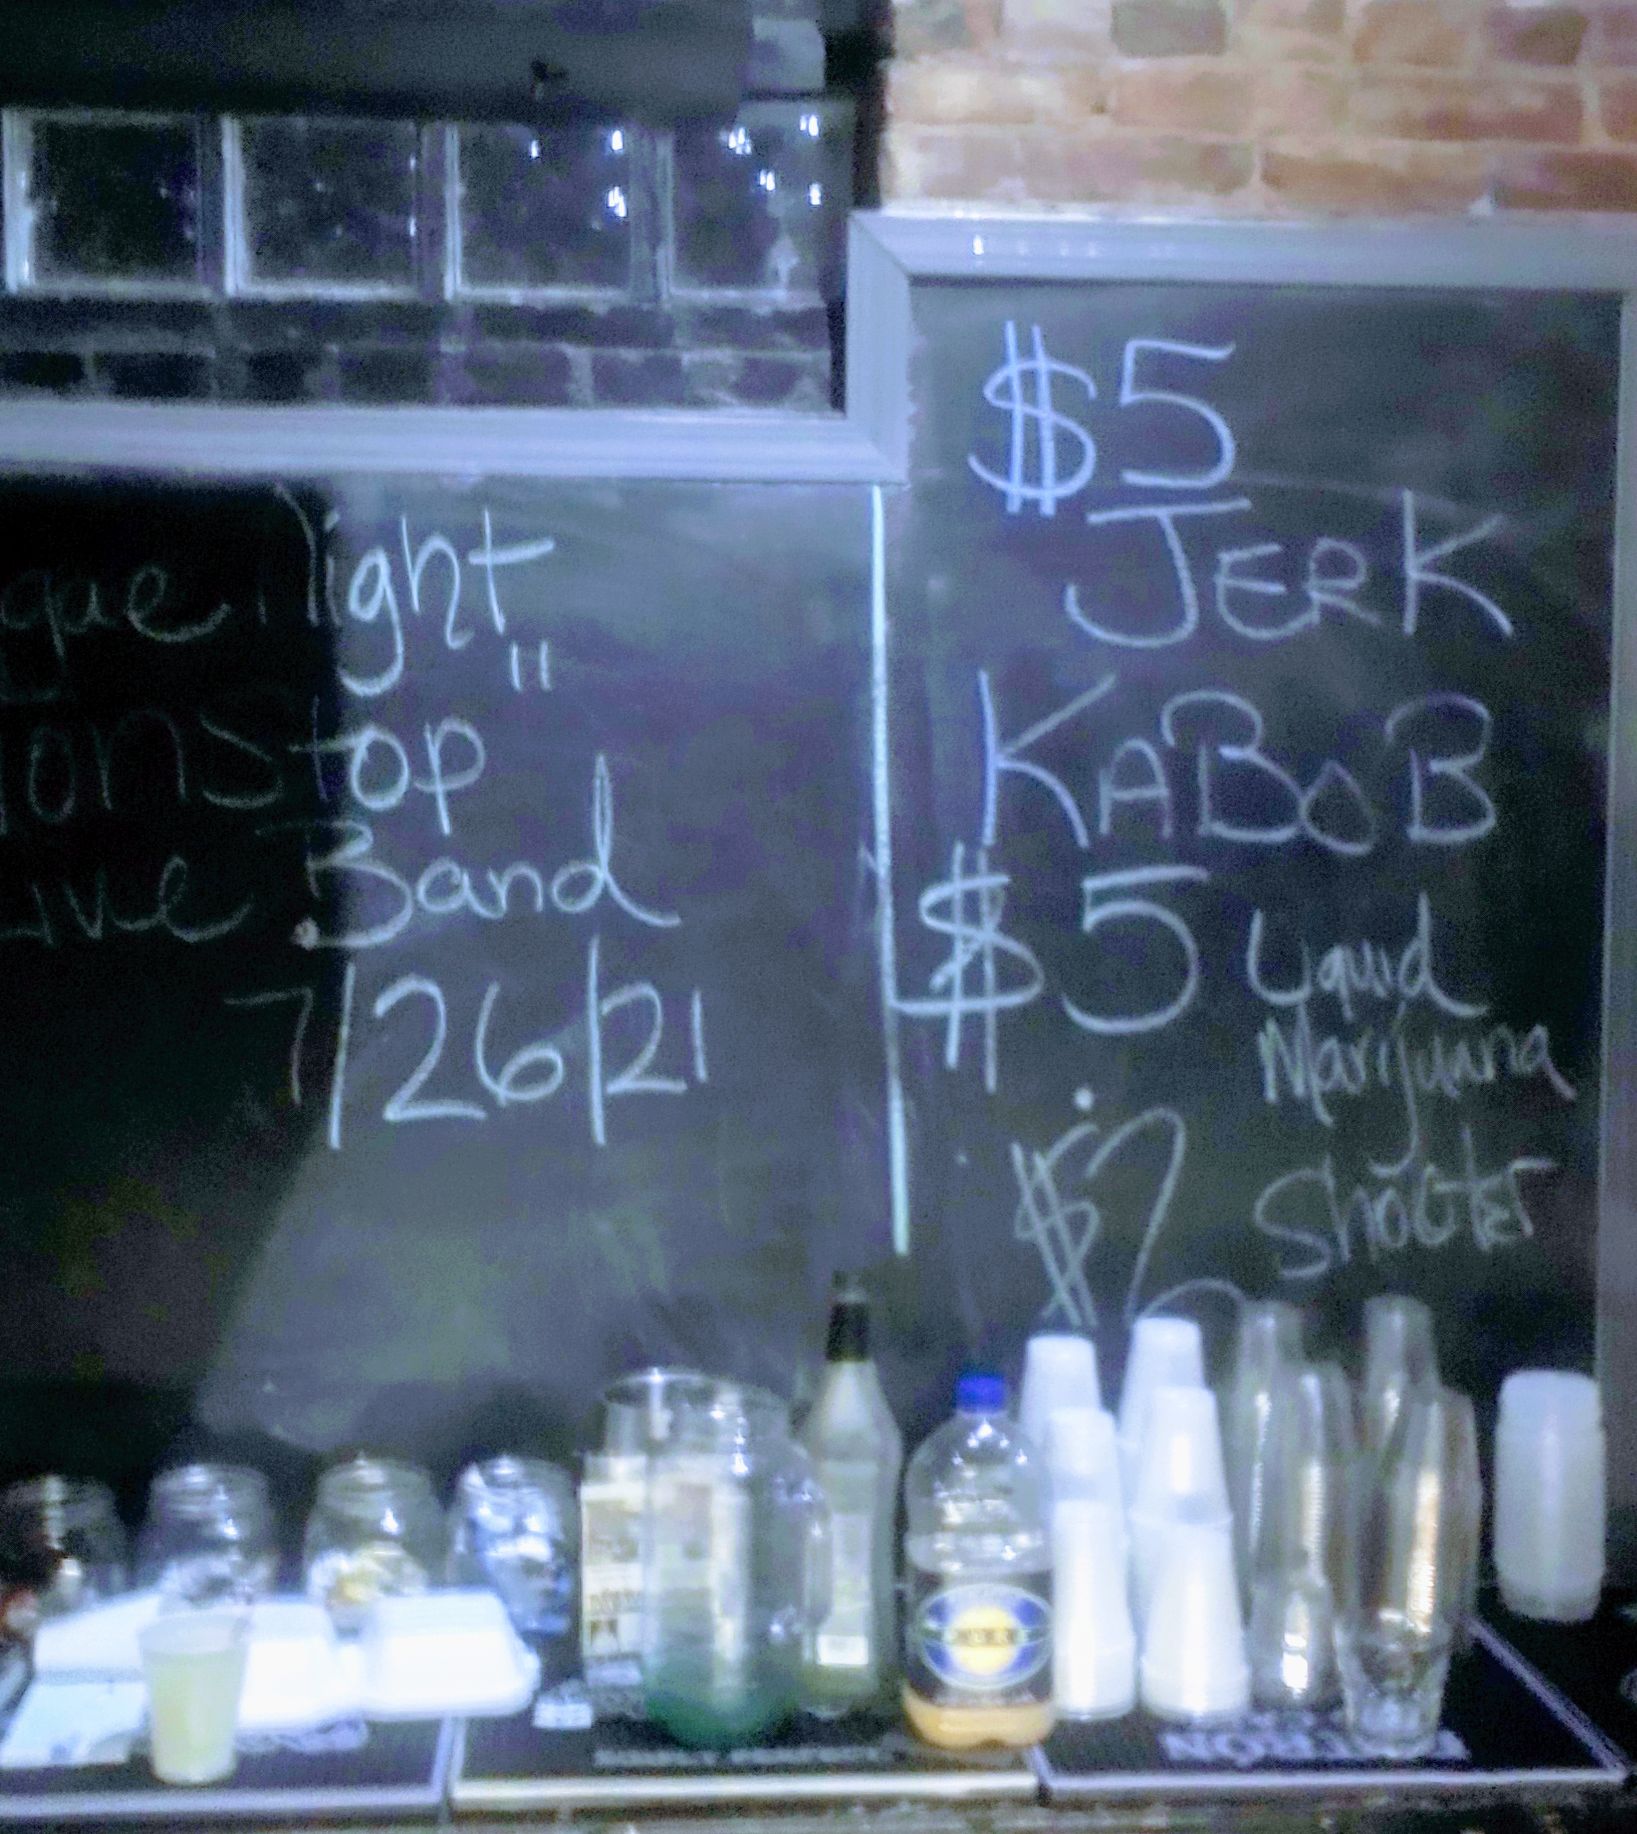 light"
onstop
ive Band
7/26/21
$5
JERK
KABOB
$5 Liquid
Marijuana
Shooter
$2